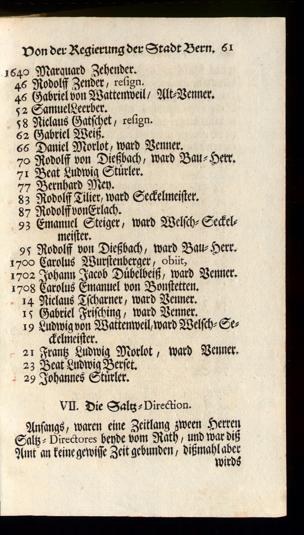 Von der Regierung der Stadt Bern. 61
1640 Marquard Zehender.
46 Rodolff Zender, resign.
46 Gabriel von Wattenweil, Alt-Venner.
52 Samuel Leerber.
58 Niclaus Gatschet, resign.
62 Gabriel Weiß.
66 Daniel Morlot, ward Venner.
70 Rodolff von Dießbach, ward Bau-Herr.
71 Beat Ludwig Stürler.
77 Bernhard Mey.
83 Rodolff Tilier, ward Seckelmeister.
87 Rodolff von Erlach.
93 Emanuel Steiger, ward Welsch-Seckel-
meister.
95 Rodolff von Dießbach, ward Bau-Herr.
1700 Carolus Wurstenberger, obiit,
1702 Johann Jacob Dübelbeiß, ward Venner.
1708 Carolus Emanuel von Bonstetten.
14 Niclaus Tscharner, ward Venner.
15 Gabriel Frisching, ward Venner.
19 Ludwig von Wattenweil, ward Welsch-Se-
ckelmeister.
21 Frantz Ludwig Morlot, ward Venner.
23 Beat Ludwig Berset.
29 Johannes Stürler.
VII. Die Saltz-Direction.
Anfangs, waren eine Zeitlang zween Herren
Saltz-Directores beyde vom Rath, und war diß
Amt an keine gewisse Zeit gebunden, dißmahl aber
wirds